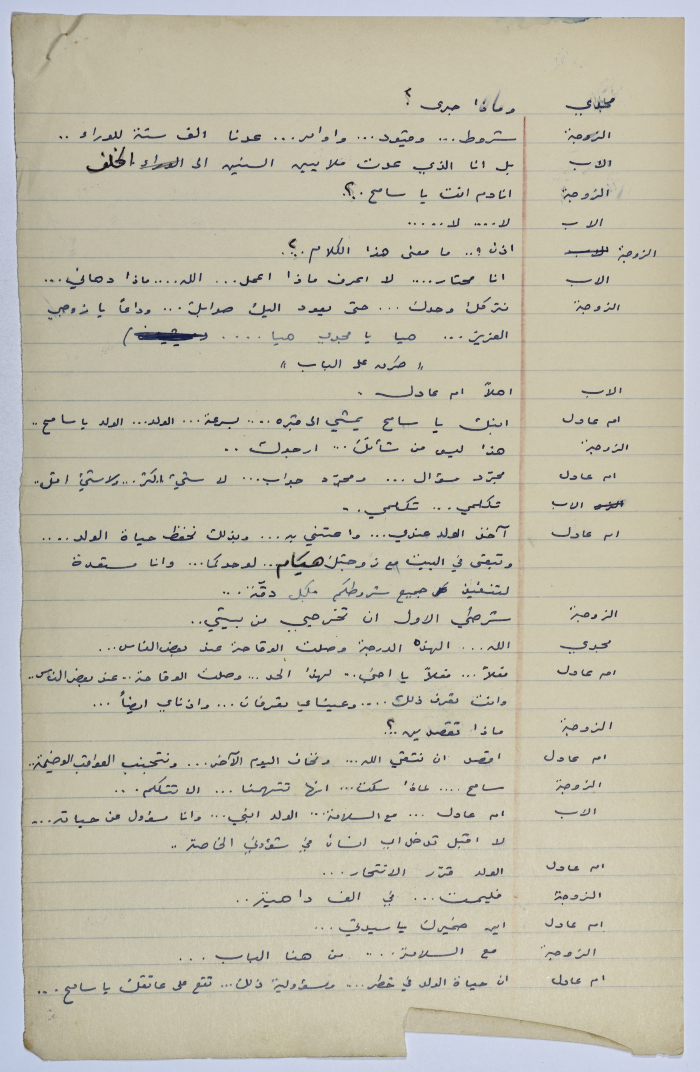 مجدي وماذا جرى ؟
الزوجة شروط... وقيود... واوامر... عدنا الف سنة للوراء ..
الاب بل انا الذي عدت ملايين السنين الى الوراء الخلف
الزوجة انادم انت يا سامح ..؟
الاب لا.... لا.....
الزوجة اذن ؟.. ما معنى هذا الكلام ..؟
الاب انا محتار.... لا اعرف ماذا اعمل... الله.... ماذا دهاني...
الزوجة نتركك وحدك... حتى يعود اليك صوابك... وداعاً يا زوجي
العزيز... هيا يا مجدي هيا ....
" طرق على الباب "
الاب اهلاً ام عادل .
ام عادل ابنك يا سامح يمشي الى قبره.... بسرعة... الولد... الولد يا سامح..
الزوجة هذا ليس من شأنك... ارجوك ..
ام عادل مجرد سؤال... ومجرد جواب... لا شيء اكثر... ولا شيء اقل..
الاب تكلمي... تكلمي..
ام عادل آخذ الولد عندي... واعتني به... وبذلك نحفظ حياة الولد.....
وتبقى في البيت مع زوجتك هيام.. لوحدكما... وانا مستعدة
لتنفيذ جميع شروطكم بكل دقة...
الزوجة شرطي الاول ان تخرجي من بيتي..
مجدي الله... ألهذه الدرجة وصلت الوقاحة عند بعض الناس...
ام عادل فعلاً... فعلاً يا اخي.. لهذا الحد... وصلت الوقاحة.. عند بعض الناس..
وانت تعرف ذلك.... وعيناي تعرفان... واذناي ايضاً...
الزوجة ماذا تقصدين ..؟
ام عادل اقصد ان نتقي الله... ونخاف اليوم الآخر... ونتجنب العواقب الوخيمة..
الزوجة سامح.... لماذا سكت... انها تتهمنا... الا تتكلم...
الاب ام عادل... مع السلامة... الولد ابني... وانا مسؤول عن حياته...
لا اقبل تدخل اي انسان في شؤوني الخاصة..
ام عادل الولد قرر الانتحار...
الزوجة فليمت... في الف داهية..
ام عادل اين ضميرك يا سيدتي...
الزوجة مع السلامة.... من هنا الباب...
ام عادل ان حياة الولد في خطر.... ومسؤولية ذلك... تقع على عاتقك يا سامح...